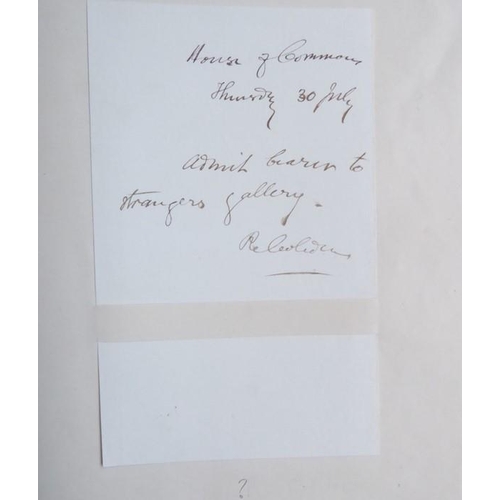 House of Commons
Thursdy 30 July
Admit bearer to
strangers gallery.
?